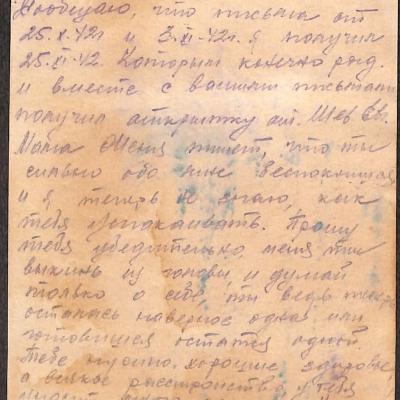 Сообщаю, что письма от
25.X.42г и 3.XI-42г. я получил
25.XI-42. Которым конечно рад.
и вместе с вашими письмами
получил открытку от. Шев Ев.
Мама Женя пишет, что ты
сильно обо мне беспокоишься
и я теперь не знаю, как
тебя успокаивать. Прошу
тебя убедительно меня ты
выкинь из головы и думай
только о себе, ты ведь теперь
осталась наверное одна или
готовишся остатся одной.
Тебе нужно хорошее здоровье,
а всякое расстройство у тебя